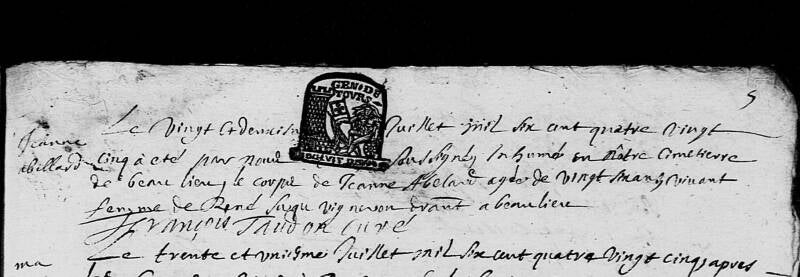 5
GEN DE
TOURS
Le vingt et deuxiesme Juillet mil six cent quatre vingt
Jeanne
Abillard
cinq à eté par nous soussigné Inhumé en nôtre Cimetierre
de beaulieu le corps de Jeanne Abelard agée de vingt ans vivant
femme de René vigneron a beaulieu
François Taudon Curé
Le trente et unisme Juillet mil six cent quatre vingt cinq apres
ma